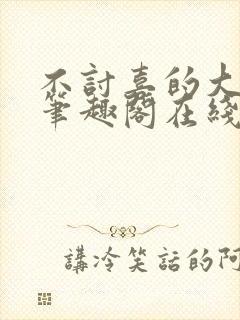 不討喜的大
筆趣閣在綫
講冷笑話的阿